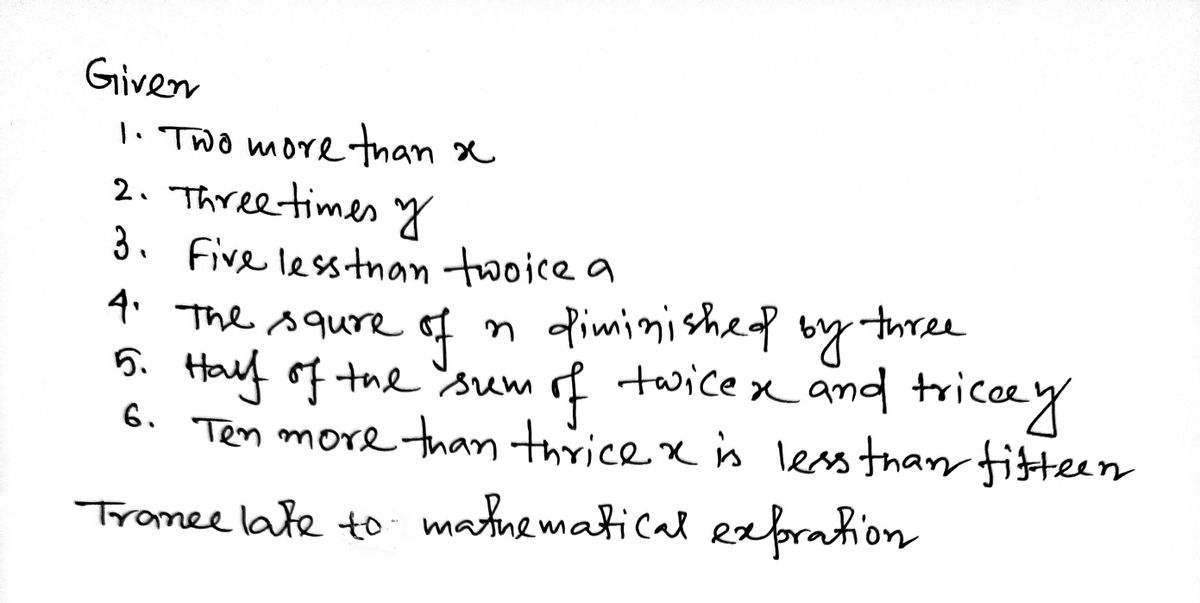 Given
1. Two more than x
2. Three times y
3. Five less than twoice a
4. The squre of n diminished by three
5. Half of the sum of twice x and tricee y
6. Ten more than thrice x is less than fifteen
Tranee late to mathematical expration